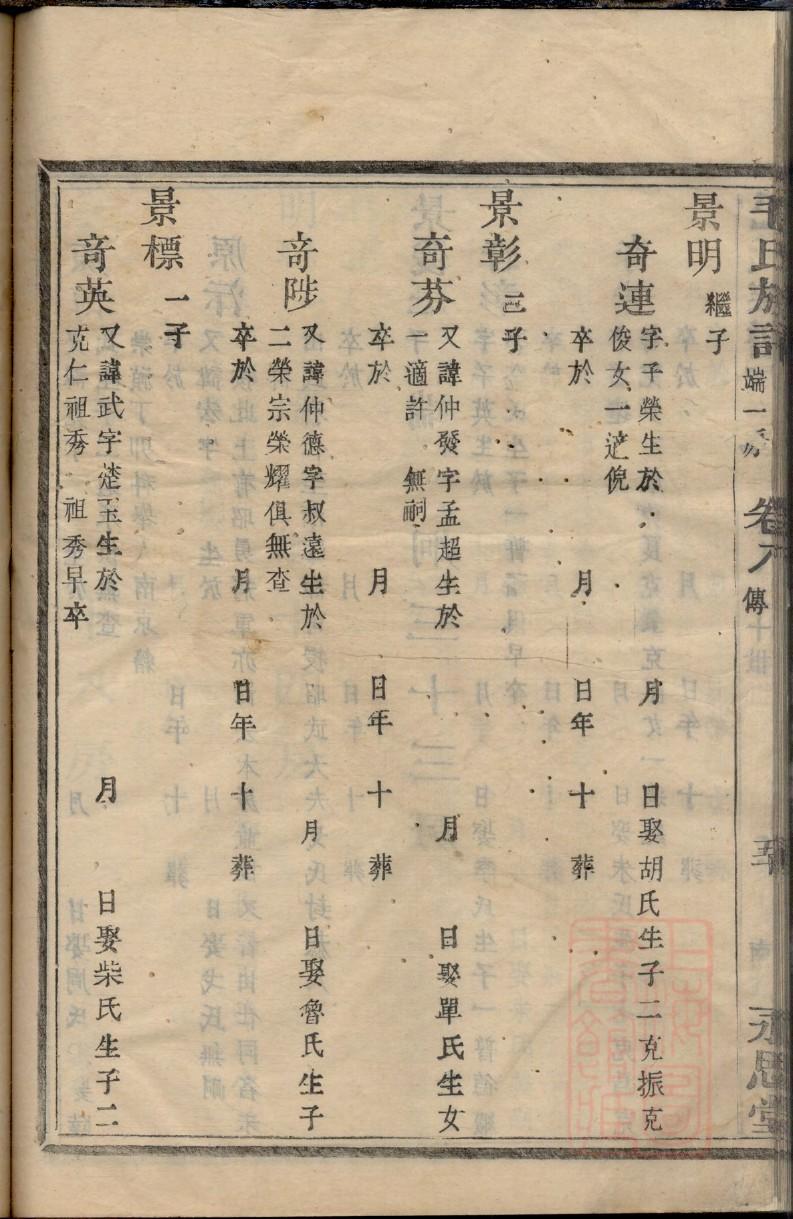 毛氏族譜 端一 卷八 傳 五 永思堂
景明 繼子
奇連 字子榮生於 月 日娶胡氏生子二克振克
俊女一適倪
卒於 月 日年 十 葬
景彰 三子
奇芬 又諱仲發字孟超生於 月 日娶單氏生女
一適許 無祠
卒於 月 日年 十 葬
奇陟 又諱仲德字叔遠生於 月 日娶魯氏生子
二榮宗榮耀俱無查
卒於 月 日年 十 葬
景標 一子
奇英 又諱武字楚玉生於 月 日娶柴氏生子二
克仁祖秀 祖秀早卒